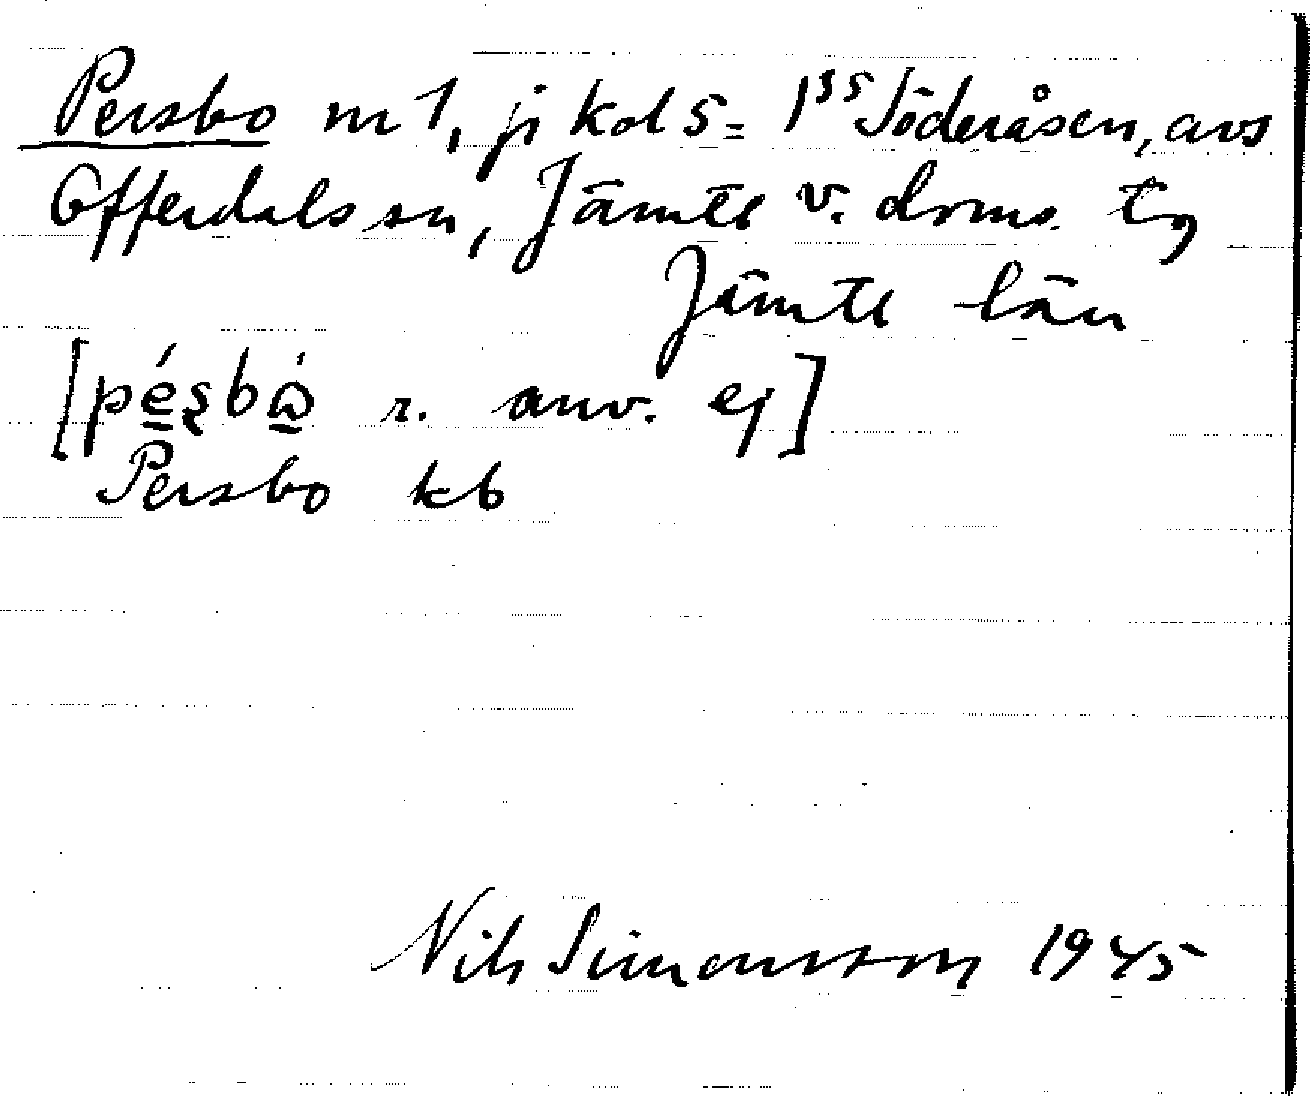 Persbo nr 1, jr kol 5 = 1⁵⁵ Söderåsen, avs
Offerdals sn, Jämtl v. doms. tg
Jämtl län
r. anv. ej]
Persbo kb
Nils Simonsson 1945